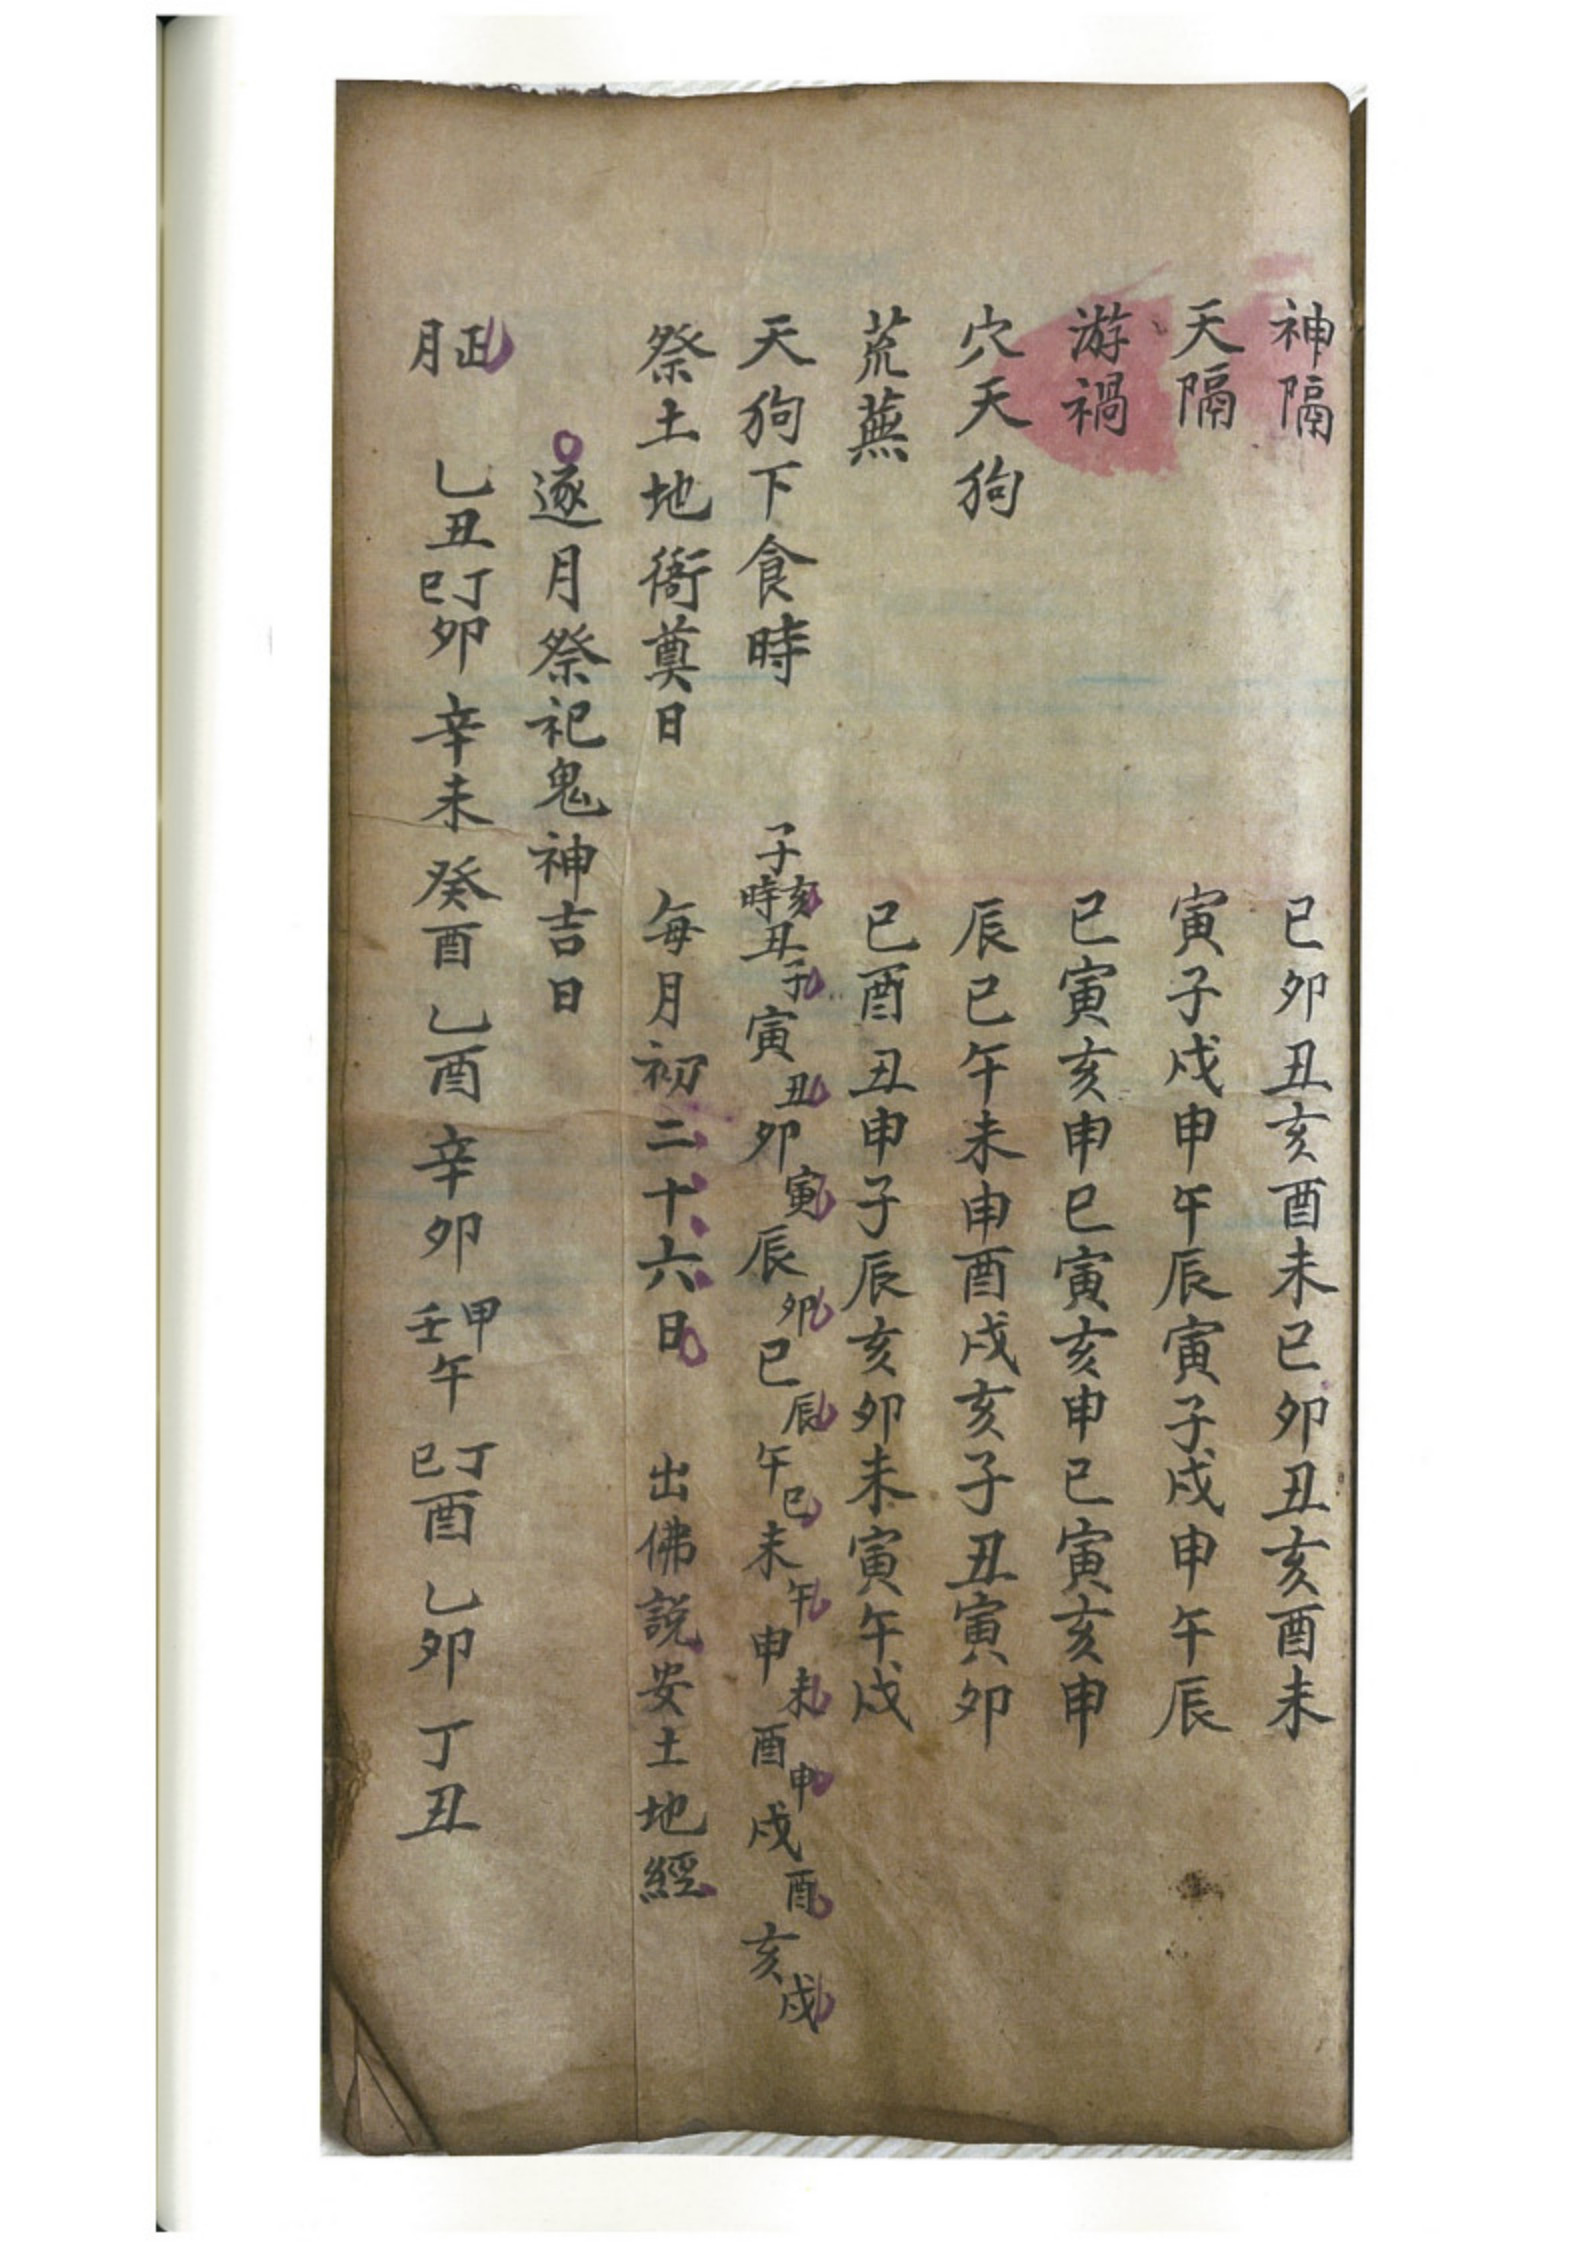 神隔 巳卯丑亥酉未巳卯丑亥酉未
天隔 寅子戌申午辰寅子戌申午辰
游禍 巳寅亥申巳寅亥申巳寅亥申
穴天狗 辰巳午未申酉戌亥子丑寅卯
荒蕪 巳酉丑申子辰亥卯未寅午戌
天狗下食時 子亥時丑子寅丑卯寅辰卯巳辰午巳未午申未酉申戌酉亥戌
祭土地衙奠日 每月初二十六日 出佛説安土地經
逐月祭祀鬼神吉日
正月 乙丑丁巳卯辛未癸酉乙酉辛卯甲壬午丁巳酉乙卯丁丑